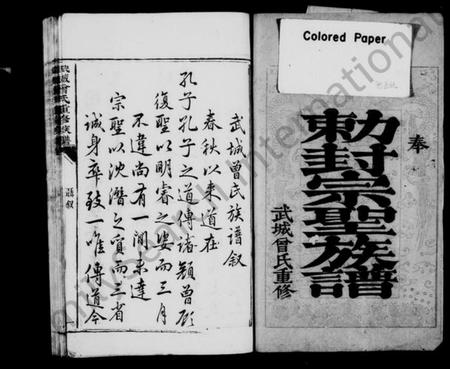 Colored Paper
奉
勅封宗聖族譜
武城曾氏重修
武城曾氏族譜叙
春秋以來道在
孔子孔子之道傳諸顏曾顧
復聖以明睿之姿而三月
不違尚有一間未達
宗聖以沈潛之質而三省
誠身卒致一唯傳道今
武城曾氏重修族譜